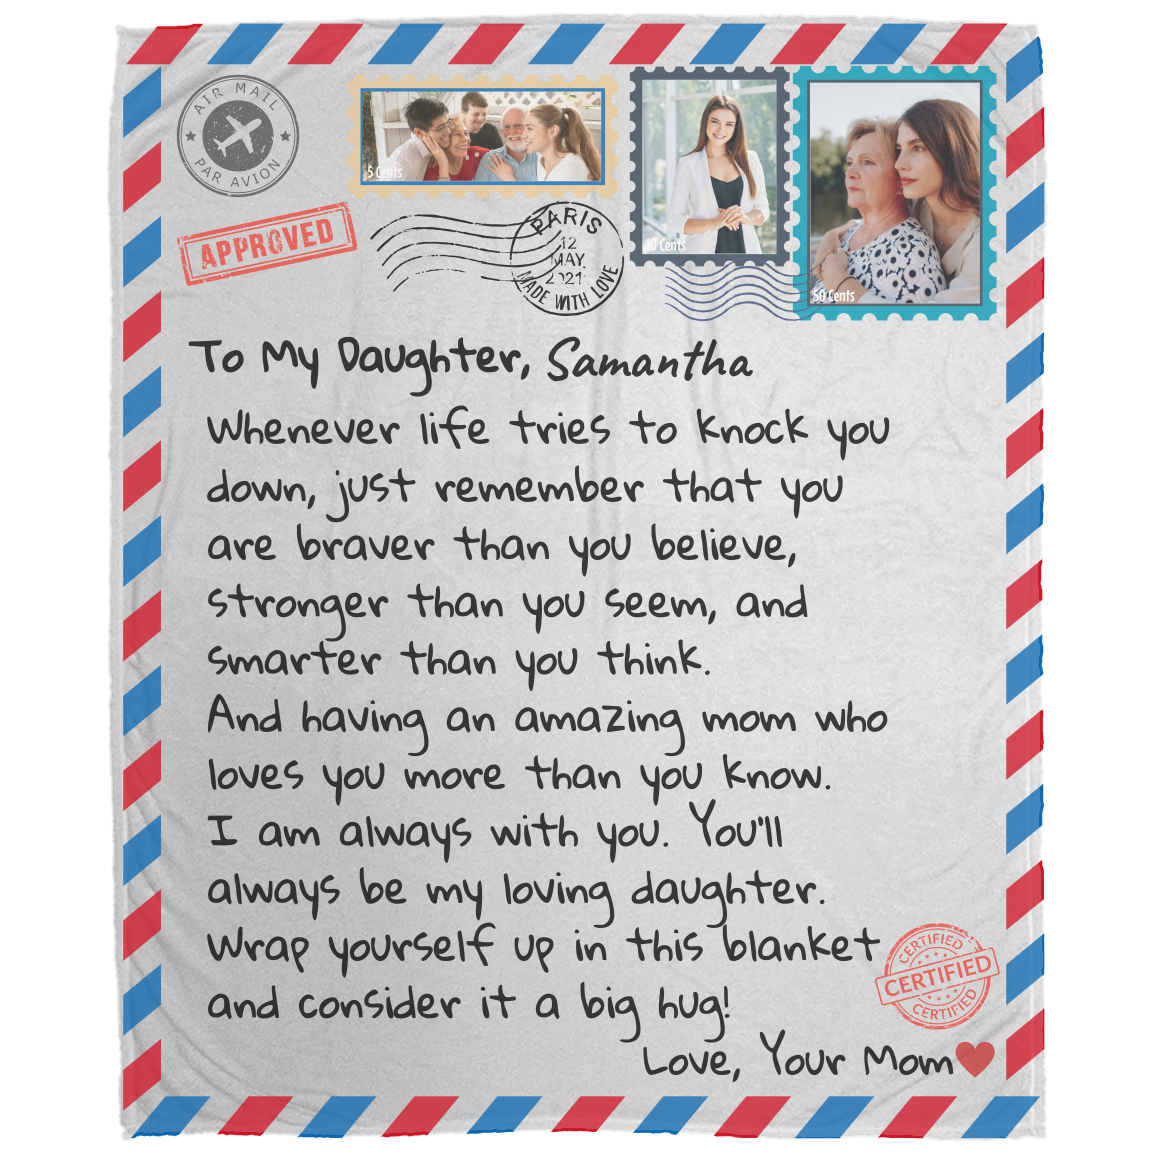 AIR MAIL
PAR AVION
APPROVED
5 Cents
PARIS
12
MAY,
2021
MADE WITH LOVE
10 Cents
50 Cents
To My Daughter, Samantha
Whenever life tries to knock you
down, just remember that you
are braver than you believe,
stronger than you seem, and
smarter than you think.
And having an amazing mom who
loves you more than you know.
I am always with you. You'll
always be my loving daughter.
Wrap yourself up in this blanket
and consider it a big hug!
CERTIFIED
CERTIFIED
CERTIFIED
Love, Your Mom